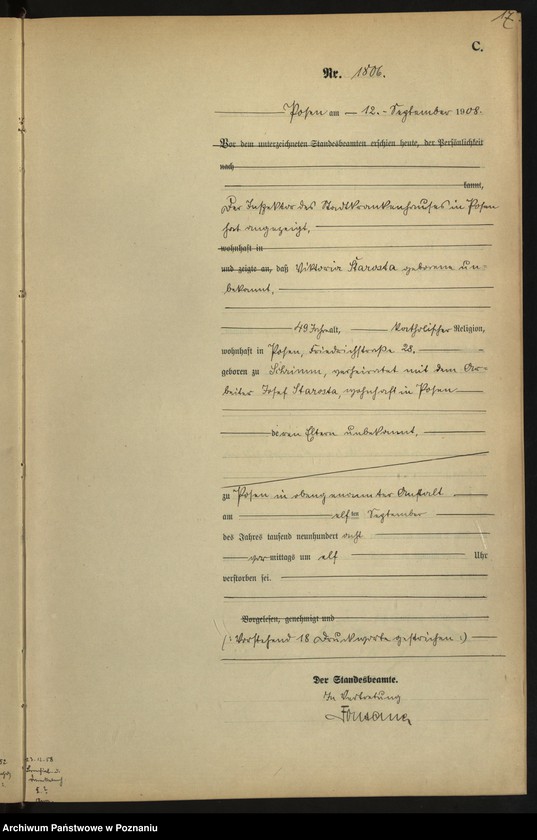 17.
C.
Nr. 1806.
Posen am 12. September 1908.
Vor dem unterzeichneten Standesbeamten erschien heute, der Persönlichkeit
nach
kannt,
Der Inspektor des Stadtkrankenhauses in Posen
hat angezeigt,
wohnhaft in
und zeigte an, daß Viktoria Starosta geborene un-
bekannt,
49 Jahre alt, katholischer Religion,
wohnhaft in Posen, Friedrichstraße 28.
geboren zu Schrimm, verheiratet mit dem Ar-
beiter Josef Starosta, wohnhaft in Posen
deren Eltern unbekannt,
zu Posen in obengenannter Anstalt
am elften September
des Jahres tausend neunhundert acht
vor mittags um elf Uhr
verstorben sei.
Vorgelesen, genehmigt und
/: Vorstehend 18 Druckworte gestrichen :/
Der Standesbeamte.
In Vertretung
Archiwum Państwowe w Poznaniu